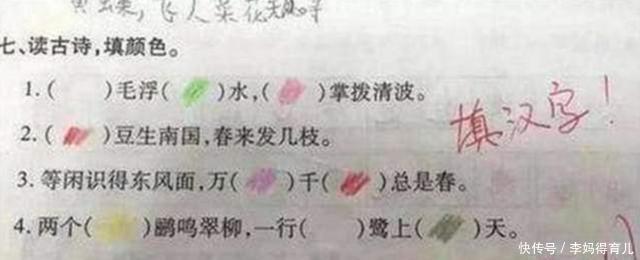 飞人菜花无
七、读古诗，填颜色。
1.(    )毛浮(    )水，(    )掌拨清波。
填汉字！
2.(    )豆生南国，春来发几枝。
3. 等闲识得东风面，万(    )千(    )总是春。
4. 两个(    )鹂鸣翠柳，一行(    )鹭上(    )天。
快传号／李妈得育儿